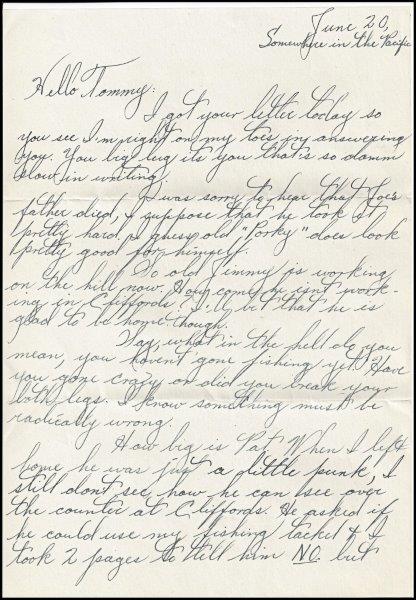 June 20,
Somewhere in the Pacific
Hello Tommy:
I got your letter today so
you see I'm right on my toes in answering
you. You big lug its you that's so damm
slow in writing.
I was sorry to hear that Joe's
father died, I suppose that he took it
pretty hard. I guess old "Porky" does look
pretty good for himself.
So old Jimmy is working
on the hill now. How come he isnt work-
ing in Cliffords. I'll bet that he is
glad to be home though.
Say, what in the hell do you
mean, you havent gone fishing yet. Have
you gone crazy or did you break your
both legs. I know something must be
radically wrong.
How big is Pat? When I left
home he was just a little punk, I
still dont see how he can see over
the counter at Cliffords. He asked if
he could use my fishing tackel & I
took 2 pages to tell him NO. but